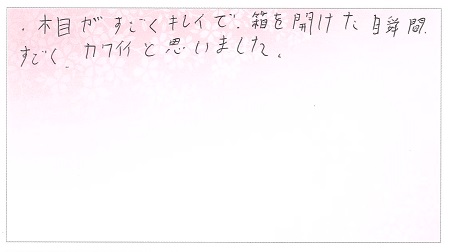 ・木目がすごくキレイで、箱を開けた瞬間、
すごく、カワイイと思いました。